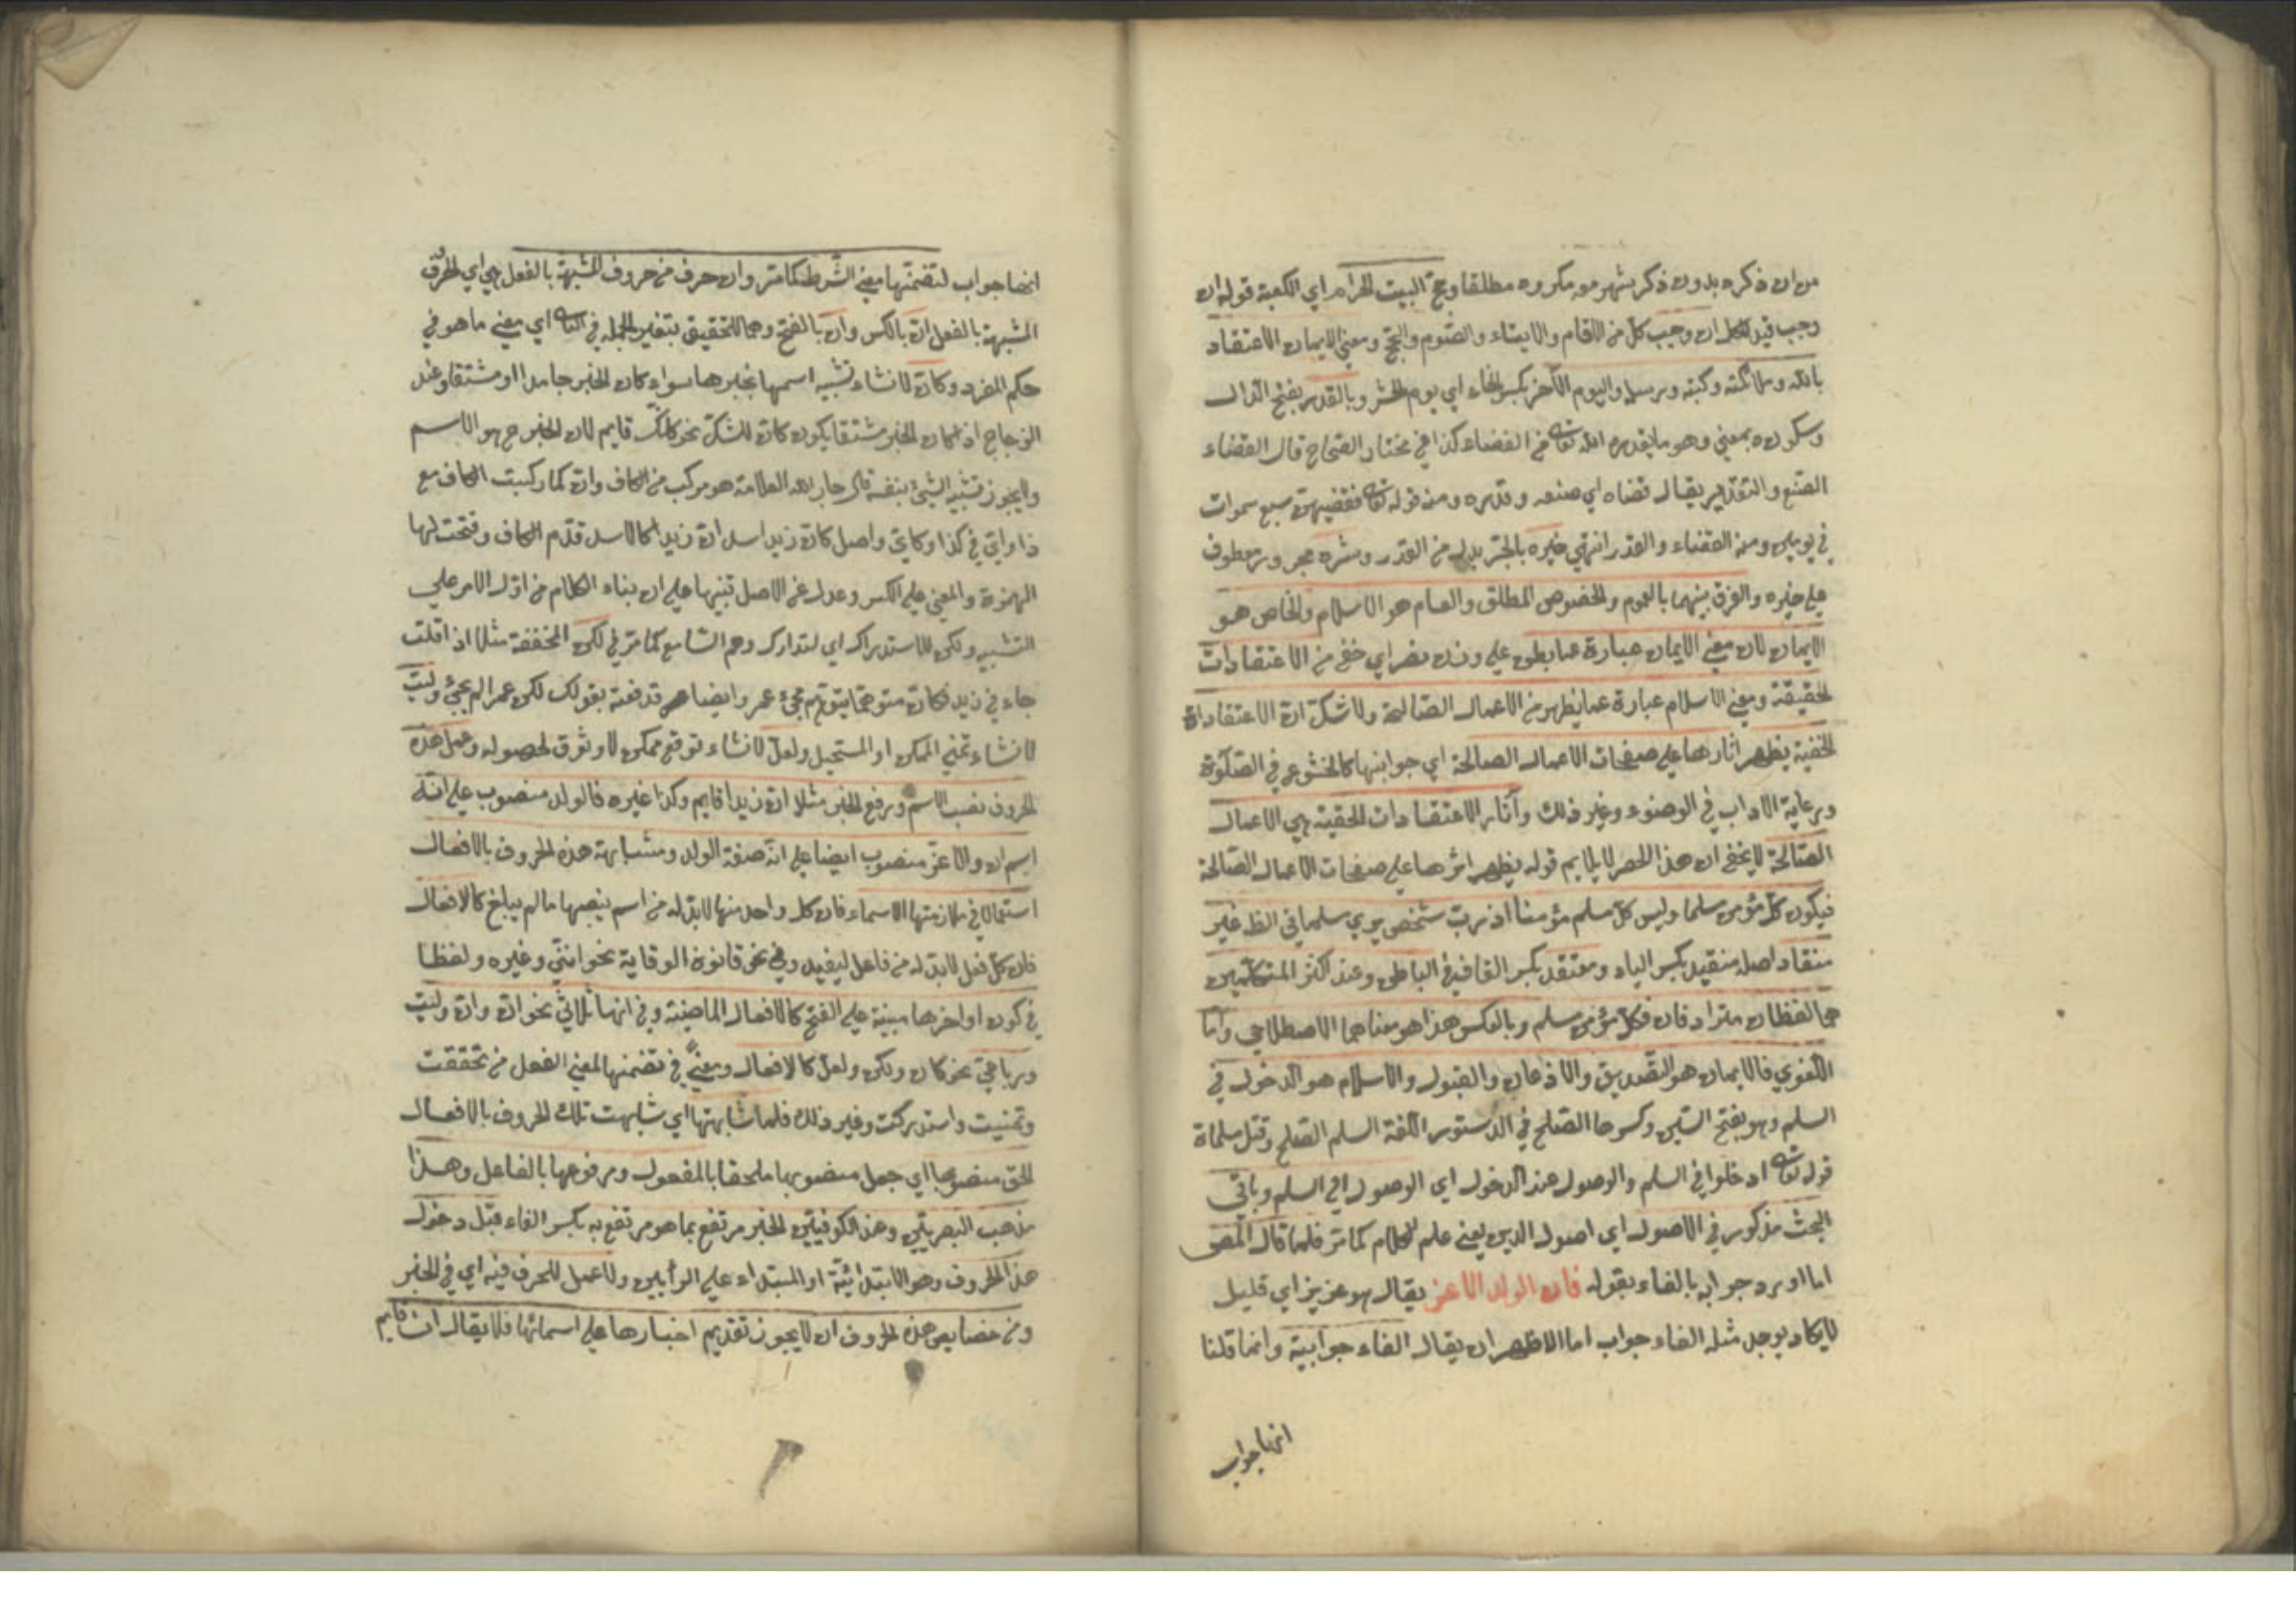 من ان ذكره بدون ذكر شهر معه مكروه مطلقا وحج البيت الحرام اي الكعبة قوله ان
وجب قيد لكل ان وجب كل من الاقام والايتاء والصوم والحج ومعنى الايمان الاعتقاد
بالله وملائكته وكتبه ورسله واليوم الآخر بكسر الخاء اي يوم الحشر وبالقدر بفتح الدال
وسكونه بمعنى وهو ما يقدره الله تعالى من القضاء كذا في مختار الصحاح قال القضاء
الصنع والتقدير يقال قضاه اي صنعه وقدره ومنه قوله تعالى فقضيهن سبع سموات
في يومين ومنه القضاء والقدر انتهى خيره بالجر بدل من القدر وشره مجرور معطوف
على خيره والفرق بينهما بالعموم والخصوص المطلق والعام هو الاسلام والخاص هو
الايمان لان معنى الايمان عبارة عما بطن على وزن نصر اي خفي من الاعتقادات
الحقيقة ومعنى الاسلام عبارة عما يظهر من الاعمال الصالحة ولا شك ان الاعتقادات
الخفية يظهر اثارها على صفحات الاعمال الصالحة اي جوانبها كالخشوع في الصلوة
ورعاية الاداب في الوضوء وغير ذلك وآثار الاعتقادات الحقية هي الاعمال
الصالحة لا يخفى ان هذا الحصر لا يلايم قوله يظهر اثرها على صفحات الاعمال الصالحة
فيكون كل مؤمن مسلما وليس كل مسلم مؤمنا اذ رب شخص يرى مسلما في الظ غير
منقاد اصله منقيد بكسر الياء ومعتقد بكسر القاف في الباطن وعند اكثر المتكلمين
هما لفظان مترادفان فكل مؤمن مسلم وبالعكس هذا هو معناهما الاصطلاحي واما
اللغوي فالايمان هو التصديق والاذعان والقبول والاسلام هو الدخول في
السلم وهو بفتح السين وكسرها الصلح في الدستور اللغة السلم الصلح وقتل سلماة
قوله تعالى ادخلوا في السلم والوصول عند الدخول اي الوصول الى السلم وباقي
البحث مذكور في الاصول اي اصول الدين يعني علم الكلام كما مر فلما قال المص
اما اورد جوابه بالفاء بقوله فان الولد الاعز يقال هو عزيز اي قليل
لا يكاد يوجد مثله الفاء جواب اما الاظهر ان يقال الفاء جوابية وانما قلنا
انها جواب
انها جواب لتضمنها معنى الشرط كما مر وان حرف من حروف المشبهة بالفعل هي اي الحروف
المشبهة بالفعل ان بالكسر وان بالفتح وهما للتحقيق بتغير الجملة في الثاني اي معنى ما هو في
حكم المفرد وكان لانشاء تشبيه اسمها بخبرها سواء كان الخبر جامدا او مشتقا وعند
الزجاج اذا كان الخبر مشتقا يكون كان للشك نحو كانك قايم لان الخبر ح هو الاسم
ولا يجوز تشبيه الشيء بنفسه قال جار الله العلامة هو مركب من الكاف وان كما ركبت الكاف مع
ذا واي في كذا وكاين واصل كان زيدا اسد ان زيدا كالاسد قدم الكاف وفتحت لها
الهمزة والمعنى على الكسر وعدل عن الاصل تنبيها على ان بناء الكلام من اول الامر على
التشبيه ولكن للاستدراك اي لتدارك وهم السامع كما مر في لكن المخففة مثلا اذا قلت
جاءني زيد فكان متوهما يتوهم مجيء عمر وايضا هو فدفعته بقولك لكن عمرا لم يجئ وليت
لانشاء تمني الممكن او المستحيل ولعل لانشاء توقع ممكن لا وثوق لحصوله وعمل هذه
الحروف نصب الاسم ورفع الخبر مثل ان زيدا قايم وكذا غيره فالولد منصوب على انه
اسم ان والاعز منصوب ايضا على انه صفة الولد ومشابهة هذه الحروف بالافعال
استعمالا في ملازمتها الاسماء فان كل واحد منها لا بد له من اسم ينصبها ما لم يبلغ كالافعال
فان كل فعل لا بد له من فاعل ليفيد وفي نحو قانون الوقاية نحو انني وغيره ولفظا
في كون اواخرها مبنية على الفتح كالافعال الماضية وفي انها ثلاثي نحو ان وان وليت
ورباعي نحو كان ولكن ولعل كالافعال ومعنى في تضمنها لمعنى الفعل من تحققت
وتمنيت واستدركت وغير ذلك فلما شابهتها اي شابهت تلك الحروف بالافعال
الحق منصوبها اي جعل منصوبها ملحقا بالمفعول ومرفوعها بالفاعل وهذا
مذهب البصريين وعند الكوفيين الخبر مرتفع بما هو مرتفع به بكسر الفاء قبل دخول
هذه الحروف وهو الابتدائية او المبتداء على الرأيين ولا عمل للحرف فيه اي في الخبر
ومن خصايص هذه الحروف ان لا يجوز تقديم اخبارها على اسمائها فلا يقال ان قايم